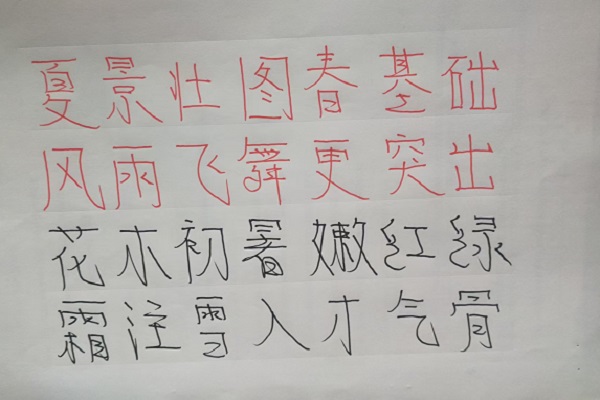 夏景壮图春基础
风雨飞舞更突出
花木初暑嫩红绿
霜注雪入才气骨